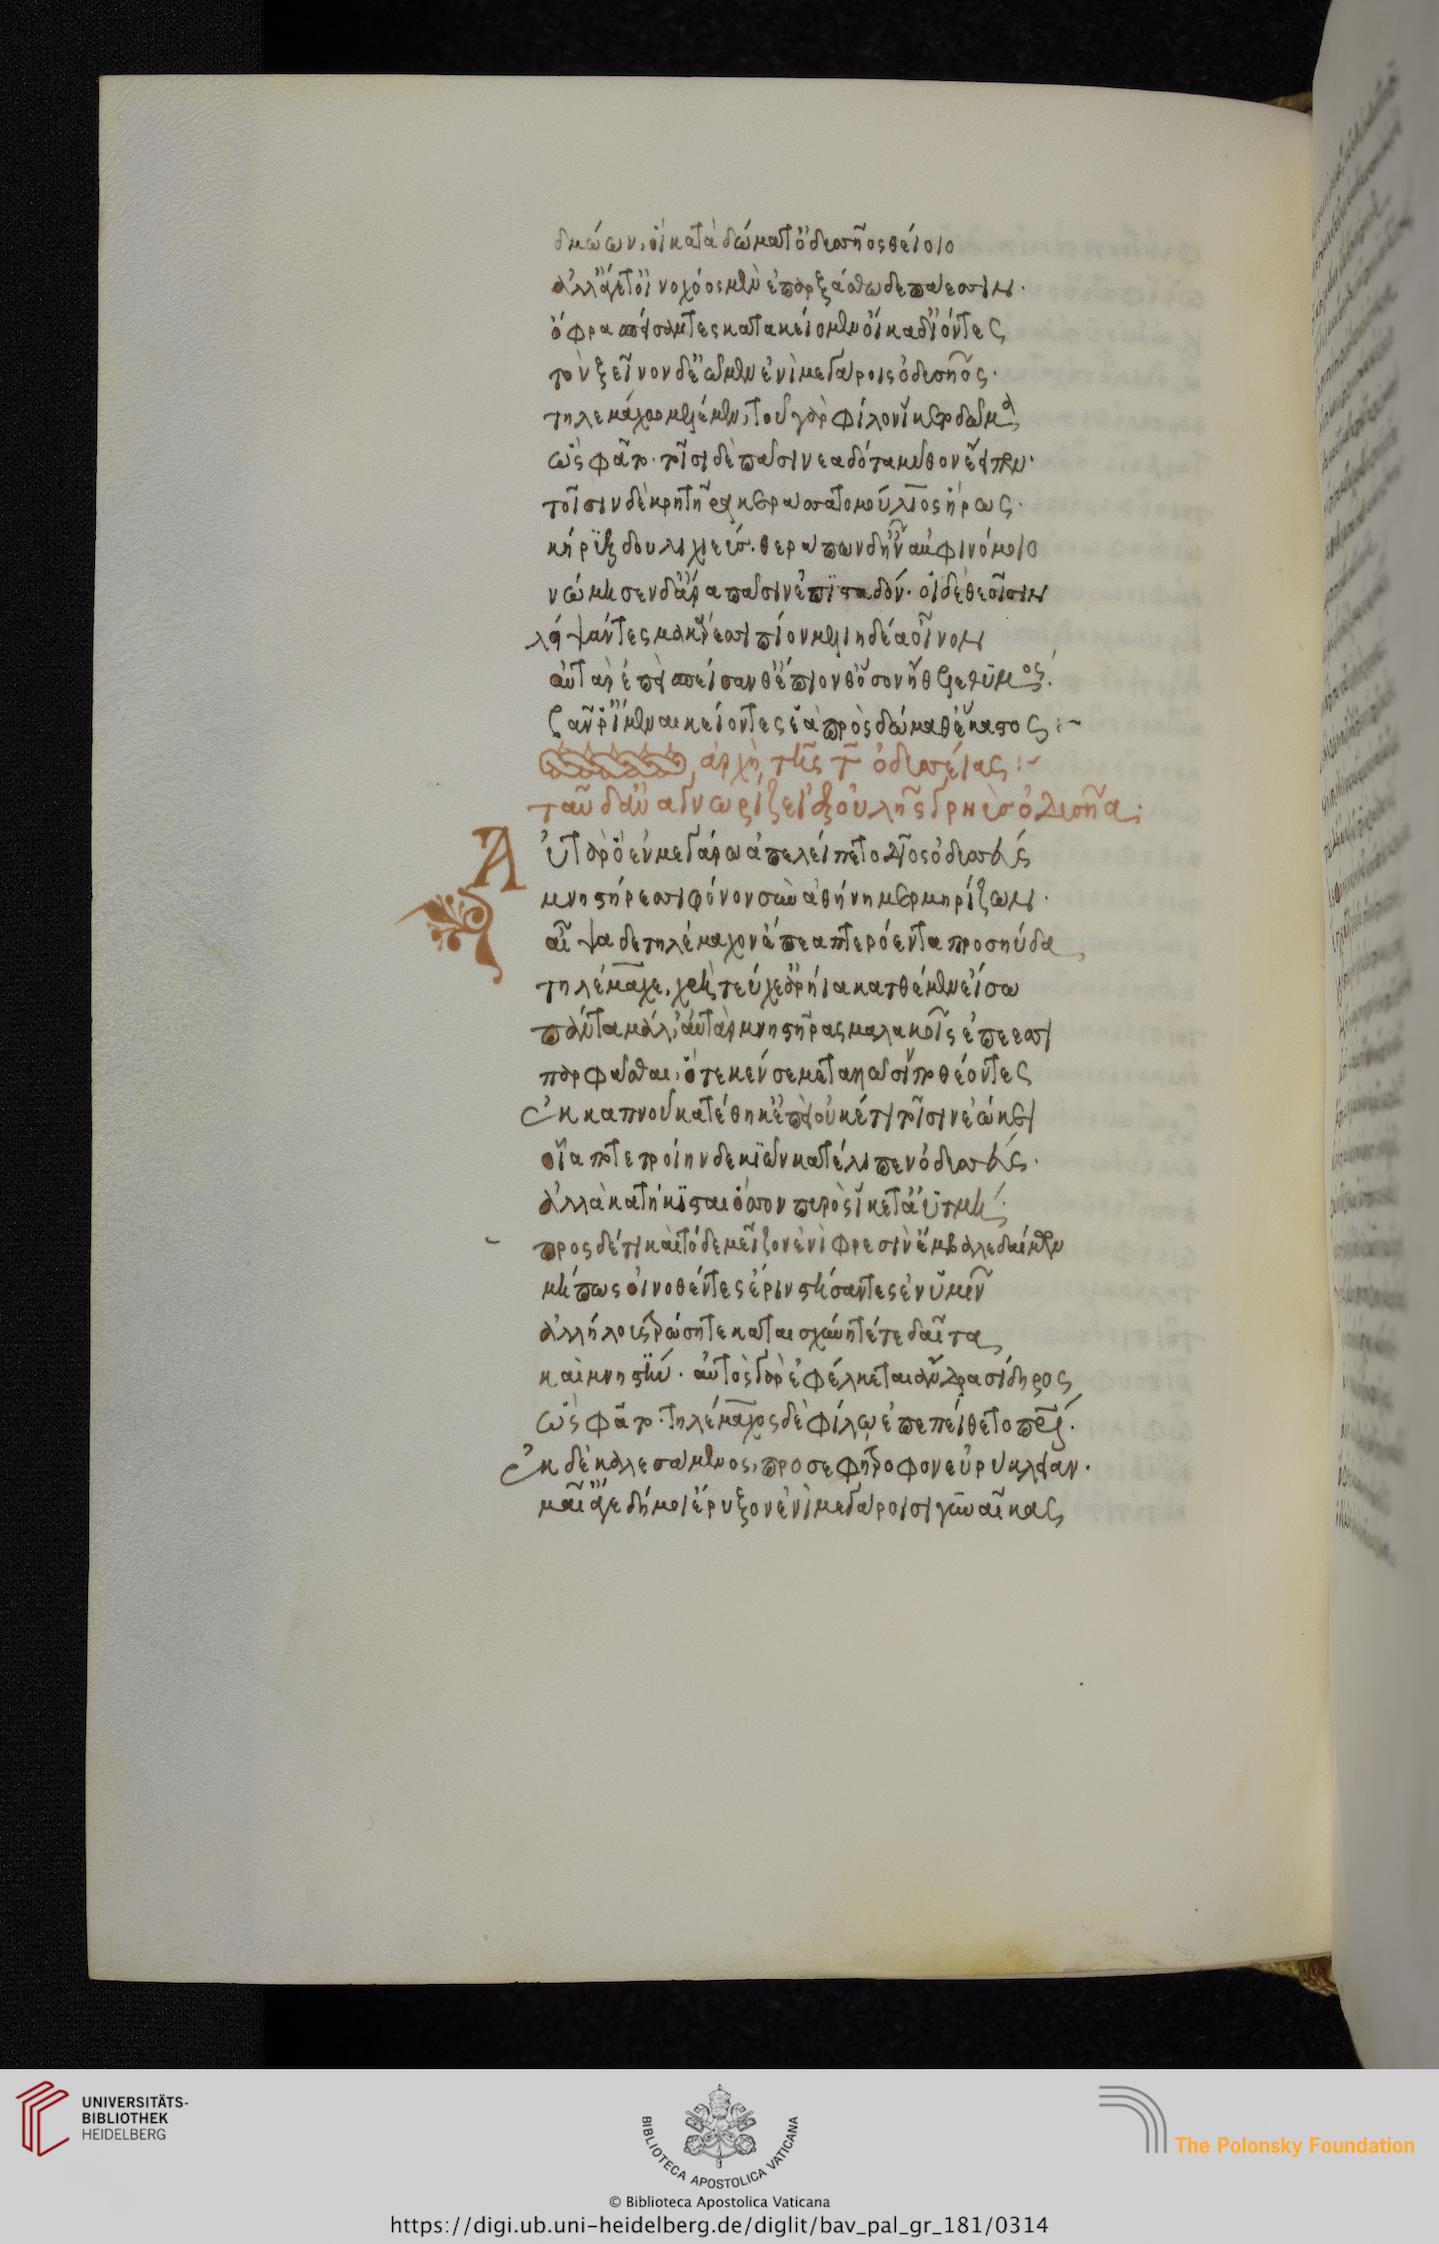 δμώων, οἳ κατὰ δώματ' ὀδυσσῆος θείοιο
ἀλλ' ἄγετ' οἰνοχόος μὲν ἐπαρξάσθω δεπάεσσιν·
ὄφρα σπείσαντες κατακείομεν οἴκαδ' ἰόντες
τὸν ξεῖνον δ' ἐῶμεν ἐνὶ μεγάροις ὀδυσῆος·
τηλεμάχω μελέμεν, τοῦ γὰρ φίλον ἵκετο δῶμα
ὣς φάτο· τοῖσι δὲ πᾶσιν ἑαδότα μῦθον ἔειπεν·
τοῖσιν δὲ κρητῆρα κεράσσατο μούλιος ἥρως·
κῆρυξ δουλιχιεύς· θεράπων δ' ἦν ἀμφινόμοιο
νώμησεν δ' ἄρα πᾶσιν ἐπισταδόν· οἱ δὲ θεοῖσιν
μακάρεσσι πίον μελιηδέα οἶνον
αὐτὰρ ἐπεὶ σπεῖσαν θ' ἔπιον θ' ὅσον ἤθελε θυμός·
βάν ῥ' ἴμεναι κείοντες ἑὰ πρὸς δώμαθ' ἕκαστος :~
ἀρχὴ τῆς τ ὀδυσσείας :~
ταῦ δ' ἀναγνωρίζει ἐξ οὐλῆς γρηῢς ὀδυσῆα:
Αὐτὰρ ὁ ἐν μεγάρω ἀπελείπετο δῖος ὀδυσσεύς
μνηστήρεσσι φόνον σὺν ἀθήνη μερμηρίζων·
αἶψα δὲ τηλέμαχον ἔπεα πτερόεντα προσηύδα
τηλέμαχε, χρὴ τεύχε' ἀρήια κατθέμεν εἴσω
πάντα μάλ', αὐτὰρ μνηστῆρας μαλακοῖς ἐπέεσσι
παρφάσθαι, ὅτε κέν σε μεταλλῶσι ποθέοντες
ἐκ καπνοῦ κατέθηκ' ἐπεὶ οὐκέτι τοῖσιν ἐώκει
οἷά ποτε τροίηνδε κιὼν κατέλιπεν ὀδυσσεύς·
ἀλλὰ κατήκισται ὅσσον πυρὸς ἵκετ' ἀυτμή·
πρὸς δ' ἔτι καὶ τόδε μεῖζον ἐνὶ φρεσὶν ἔμβαλε δαίμων
μήπως οἰνωθέντες ἔριν στήσαντες ἐν ὑμῖν
ἀλλήλους τρώσητε καταισχύνητέ τε δαῖτα
καὶ μνηστύν· αὐτὸς γὰρ ἐφέλκεται ἄνδρα σίδηρος
ὣς φάτο· τηλέμαχος δὲ φίλω ἐπεπείθετο πατρί·
ἐκ δὲ καλεσσάμενος, προσέφη τροφὸν εὐρύκλειαν·
μαῖ' ἄγε δή μοι ἔρυξον ἐνὶ μεγάροισι γυναῖκας
UNIVERSITÄTS-
BIBLIOTHEK
HEIDELBERG
BIBLIOTECA APOSTOLICA VATICANA
The Polonsky Foundation
© Biblioteca Apostolica Vaticana
https://digi.ub.uni-heidelberg.de/diglit/bav_pal_gr_181/0314